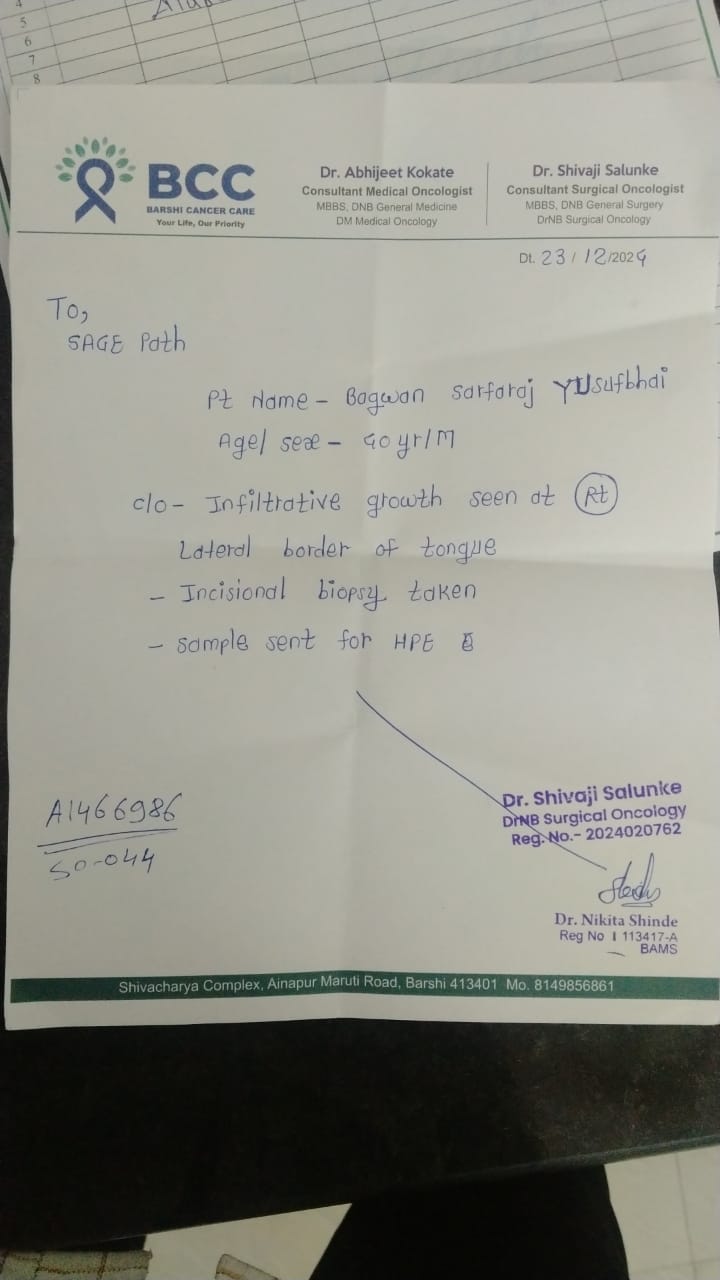 4
5
6
7
8
BCC
BARSHI CANCER CARE
Your Life, Our Priority
Dr. Abhijeet Kokate
Consultant Medical Oncologist
MBBS, DNB General Medicine
DM Medical Oncology
Dr. Shivaji Salunke
Consultant Surgical Oncologist
MBBS, DNB General Surgery
DrNB Surgical Oncology
Dt. 23/12/2024
To,
SAGE Path
Pt Name - Bagwan Sarfaraj Yusufbhai
Age/ sex - 40 yr/M
c/o - Infiltrative growth seen at Rt
Lateral border of tongue
- Incisional biopsy taken
- sample sent for HPE
A1466986
SO-044
Dr. Shivaji Salunke
DrNB Surgical Oncology
Reg. No.- 2024020762
Dr. Nikita Shinde
Reg No I 113417-A
BAMS
Shivacharya Complex, Ainapur Maruti Road, Barshi 413401 Mo. 8149856861